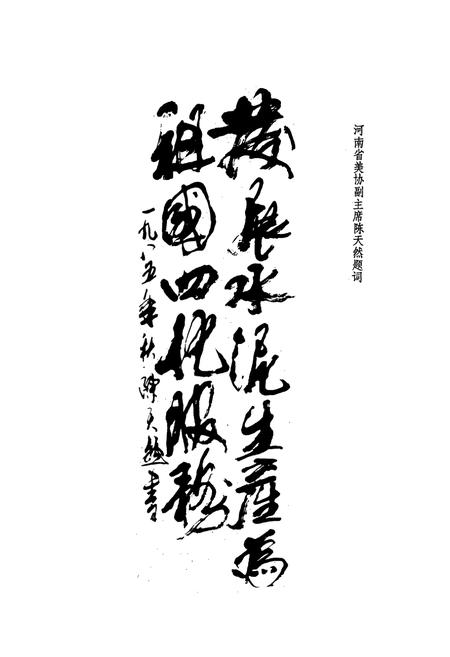 河南省美协副主席陈天然题词
發展水泥生産為
祖國四化服務
一九八五年秋陈天然書